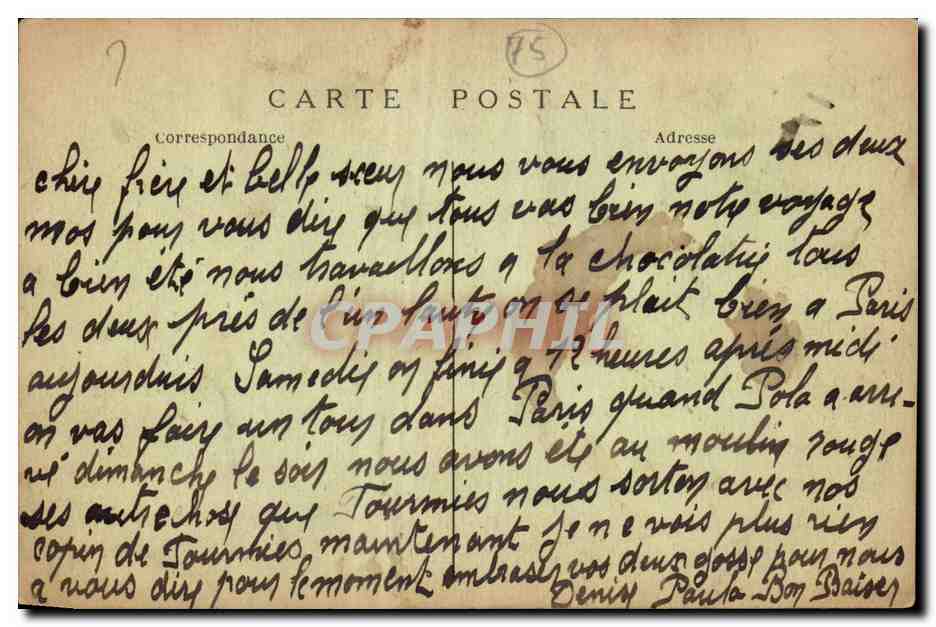 75
CARTE POSTALE
Correspondance Adresse
chère frère et belle sœur nous vous envoyons ses deux
mos pour vous dire que tous vas bien notre voyage
a bien été nous travaellons a la chocolatrie tous
les deux près de l'un lautre on se plait bien a Paris
aujourduis Samedie on finie a 12 heures après midi
on vas faire un tour dans Paris quand Pola a arri-
vé dimanche le soir nous avons été au moulin rouge
ses autre chose que Tourmies nous sorton avec nos
copin de Tourmies maintenant je ne vois plus rien
a vous dire pour le moment embrasser vos deux gosse pour nous
Denise Paula Bon Baiser
CPAPHIL